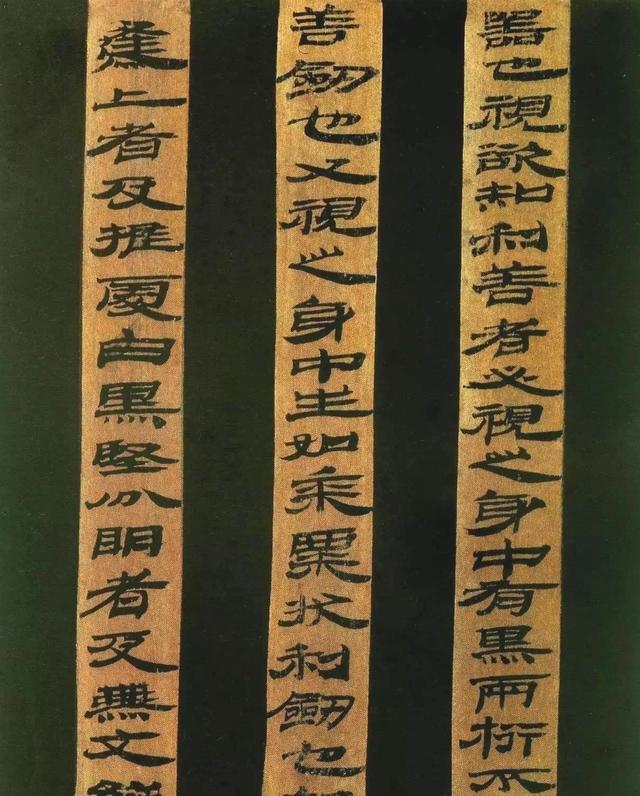 器也視欲知利善者必視之身中有黑兩桁不
善劍也又視之身中生如黍粟狀利劍也
上者及推處白黑堅分明者及無文